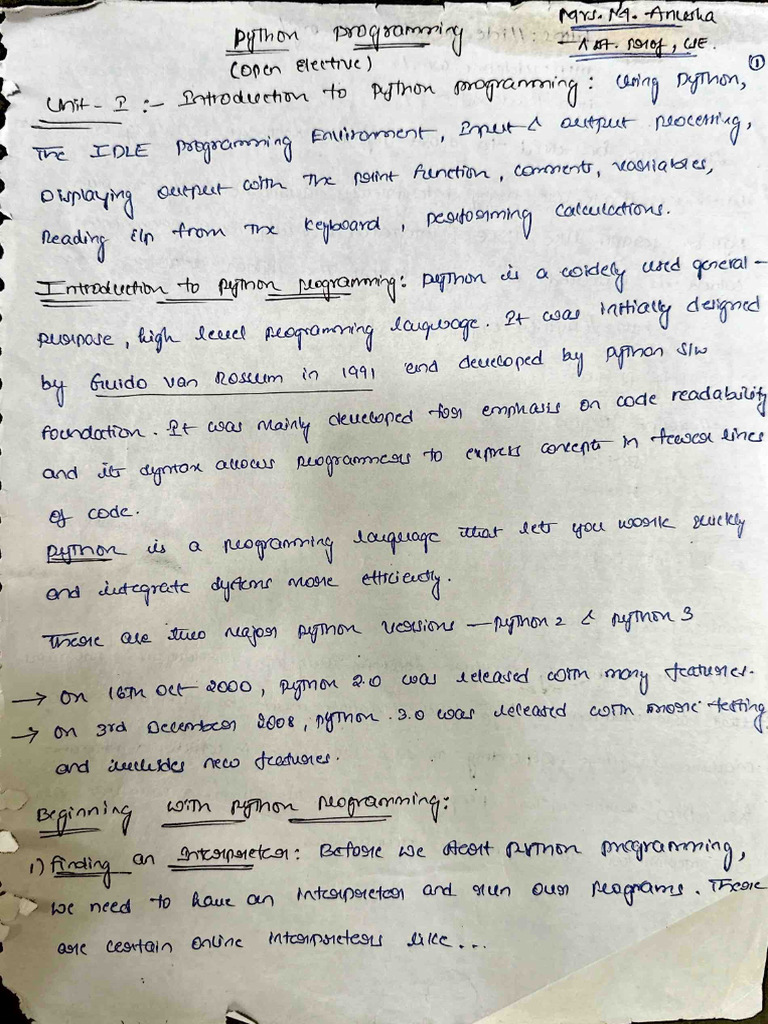 Mrs. M. Anusha
Python Programming
Ast. Prof, CSE.
(open elective)
1
Unit - I :- Introduction to Python programming: Using Python,
The IDLE Programming Environment, Input & output processing,
Displaying output with the print function, comments, variables,
Reading I/p from the keyboard, performing calculations.
Introduction to Python programming: Python is a widely used general-
purpose, high level programming language. It was initially designed
by Guido van Rossum in 1991 and developed by Python S/w
foundation. It was mainly developed for emphasis on code readability
and its syntax allows programmers to express concepts in fewer lines
of code.
Python is a programming language that lets you work quickly
and integrate systems more efficiently.
There are two major Python versions — Python 2 & Python 3
→ on 16th Oct 2000, Python 2.0 was released with many features.
→ on 3rd December 2008, Python 3.0 was released with more testing
and includes new features.
Beginning with Python programming:
1) Finding an Interpreter: Before we start Python programming,
we need to have an interpreter and run our programs. There
are certain online interpreters like...